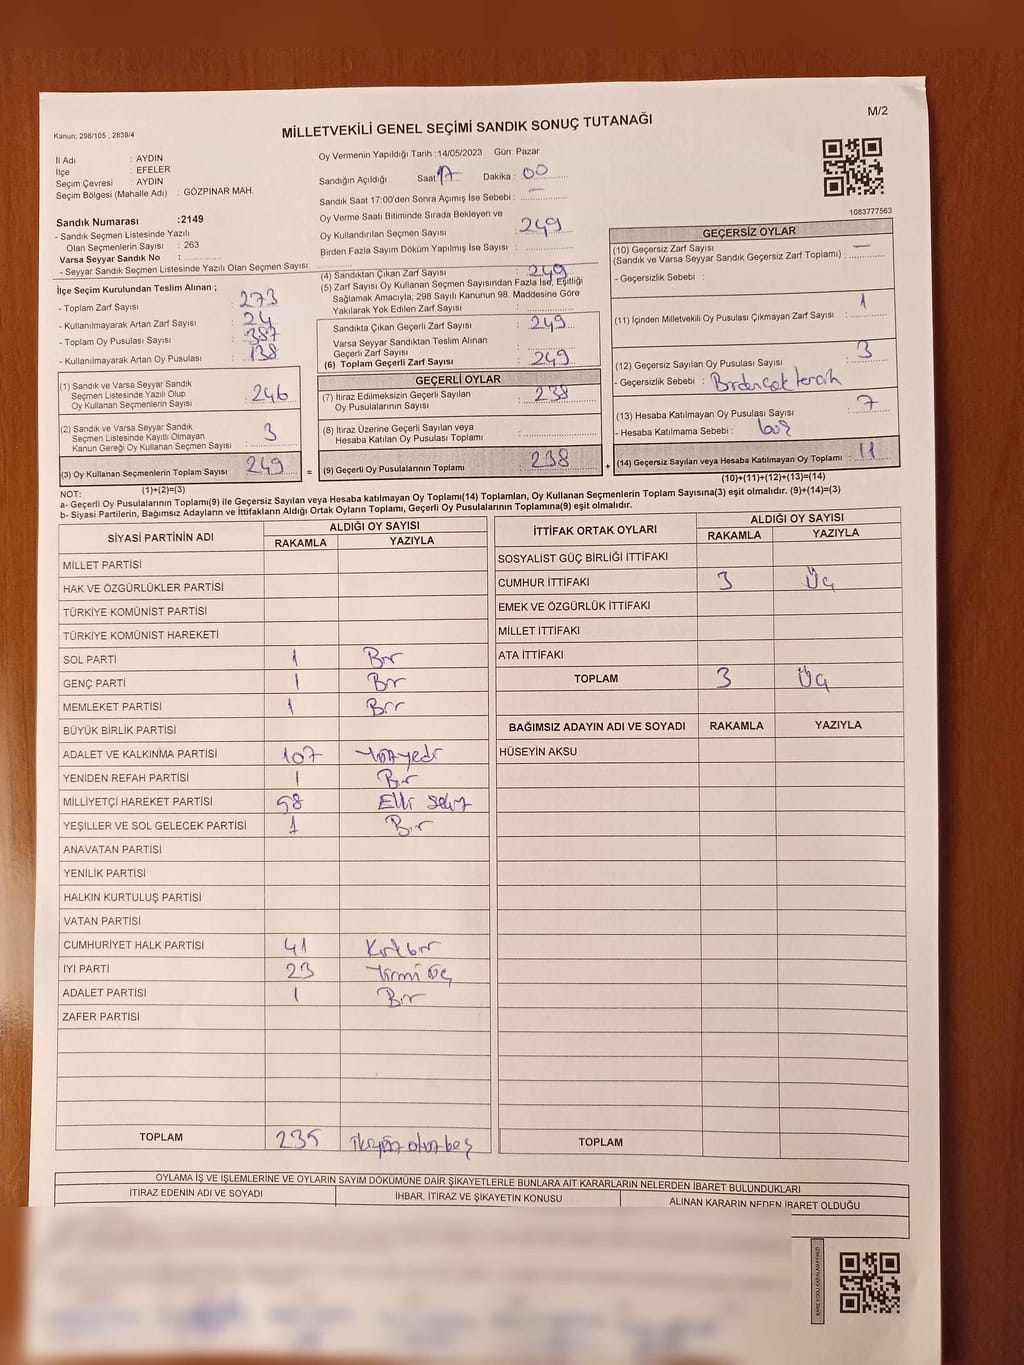 Kanun; 298/105 , 2839/4
MİLLETVEKİLİ GENEL SEÇİMİ SANDIK SONUÇ TUTANAĞI
M/2
İl Adı : AYDIN
İlçe : EFELER
Seçim Çevresi : AYDIN
Seçim Bölgesi (Mahalle Adı) : GÖZPINAR MAH.
Sandık Numarası :2149
- Sandık Seçmen Listesinde Yazılı
Olan Seçmenlerin Sayısı : 263
Varsa Seyyar Sandık No :
- Seyyar Sandık Seçmen Listesinde Yazılı Olan Seçmen Sayısı:
Oy Vermenin Yapıldığı Tarih :14/05/2023 Gün: Pazar
Sandığın Açıldığı Saat: 17 Dakika : 00
Sandık Saat 17:00'den Sonra Açımış İse Sebebi : —
Oy Verme Saati Bitiminde Sırada Bekleyen ve
Oy Kullandırılan Seçmen Sayısı : 249
Birden Fazla Sayım Döküm Yapılmış İse Sayısı :
1083777563
İlçe Seçim Kurulundan Teslim Alınan ;
- Toplam Zarf Sayısı : 273
- Kullanılmayarak Artan Zarf Sayısı : 24
- Toplam Oy Pusulası Sayısı : 387
- Kullanılmayarak Artan Oy Pusulası : 138
(1) Sandık ve Varsa Seyyar Sandık
Seçmen Listesinde Yazılı Olup
Oy Kullanan Seçmenlerin Sayısı : 246
(2) Sandık ve Varsa Seyyar Sandık
Seçmen Listesinde Kayıtlı Olmayan
Kanun Gereği Oy Kullanan Seçmen Sayısı : 3
(3) Oy Kullanan Seçmenlerin Toplam Sayısı : 249 =
(1)+(2)=(3)
(4) Sandıktan Çıkan Zarf Sayısı : 249
(5) Zarf Sayısı Oy Kullanan Seçmen Sayısından Fazla İse, Eşitliği
Sağlamak Amacıyla; 298 Sayılı Kanunun 98. Maddesine Göre
Yakılarak Yok Edilen Zarf Sayısı :
Sandıkta Çıkan Geçerli Zarf Sayısı : 249
Varsa Seyyar Sandıktan Teslim Alınan
Geçerli Zarf Sayısı :
(6) Toplam Geçerli Zarf Sayısı : 249
GEÇERLİ OYLAR
(7) İtiraz Edilmeksizin Geçerli Sayılan
Oy Pusulalarının Sayısı : 238
(8) İtiraz Üzerine Geçerli Sayılan veya
Hesaba Katılan Oy Pusulası Toplamı :
(9) Geçerli Oy Pusulalarının Toplamı : 238 +
GEÇERSİZ OYLAR
(10) Geçersiz Zarf Sayısı
(Sandık ve Varsa Seyyar Sandık Geçersiz Zarf Toplamı) : —
- Geçersizlik Sebebi :
(11) İçinden Milletvekili Oy Pusulası Çıkmayan Zarf Sayısı : 1
(12) Geçersiz Sayılan Oy Pusulası Sayısı : 3
- Geçersizlik Sebebi : Birden çok tercih
(13) Hesaba Katılmayan Oy Pusulası Sayısı : 7
- Hesaba Katılmama Sebebi : boş
(14) Geçersiz Sayılan veya Hesaba Katılmayan Oy Toplamı : 11
(10)+(11)+(12)+(13)=(14)
NOT:
a- Geçerli Oy Pusulalarının Toplamı(9) ile Geçersiz Sayılan veya Hesaba katılmayan Oy Toplamı(14) Toplamları, Oy Kullanan Seçmenlerin Toplam Sayısına(3) eşit olmalıdır. (9)+(14)=(3)
b- Siyasi Partilerin, Bağımsız Adayların ve İttifakların Aldığı Ortak Oyların Toplamı, Geçerli Oy Pusulalarının Toplamına(9) eşit olmalıdır.
SİYASİ PARTİNİN ADI ALDIĞI OY SAYISI
RAKAMLA YAZIYLA
MİLLET PARTİSİ
HAK VE ÖZGÜRLÜKLER PARTİSİ
TÜRKİYE KOMÜNİST PARTİSİ
TÜRKİYE KOMÜNİST HAREKETİ
SOL PARTİ 1 Bir
GENÇ PARTİ 1 Bir
MEMLEKET PARTİSİ 1 Bir
BÜYÜK BİRLİK PARTİSİ
ADALET VE KALKINMA PARTİSİ 107 Yüzyedi
YENİDEN REFAH PARTİSİ 1 Bir
MİLLİYETÇİ HAREKET PARTİSİ 58 Elli sekiz
YEŞİLLER VE SOL GELECEK PARTİSİ 1 Bir
ANAVATAN PARTİSİ
YENİLİK PARTİSİ
HALKIN KURTULUŞ PARTİSİ
VATAN PARTİSİ
CUMHURİYET HALK PARTİSİ 41 Kırkbir
İYİ PARTİ 23 Yirmi üç
ADALET PARTİSİ 1 Bir
ZAFER PARTİSİ
TOPLAM 235 ikiyüz otuz beş
İTTİFAK ORTAK OYLARI ALDIĞI OY SAYISI
RAKAMLA YAZIYLA
SOSYALİST GÜÇ BİRLİĞİ İTTİFAKI
CUMHUR İTTİFAKI 3 Üç
EMEK VE ÖZGÜRLÜK İTTİFAKI
MİLLET İTTİFAKI
ATA İTTİFAKI
TOPLAM 3 Üç
BAĞIMSIZ ADAYIN ADI VE SOYADI RAKAMLA YAZIYLA
HÜSEYİN AKSU
TOPLAM
OYLAMA İŞ VE İŞLEMLERİNE VE OYLARIN SAYIM DÖKÜMÜNE DAİR ŞİKAYETLERLE BUNLARA AİT KARARLARIN NELERDEN İBARET BULUNDUKLARI
İTİRAZ EDENİN ADI VE SOYADI İHBAR, İTİRAZ VE ŞİKAYETİN KONUSU ALINAN KARARIN NEDEN İBARET OLDUĞU